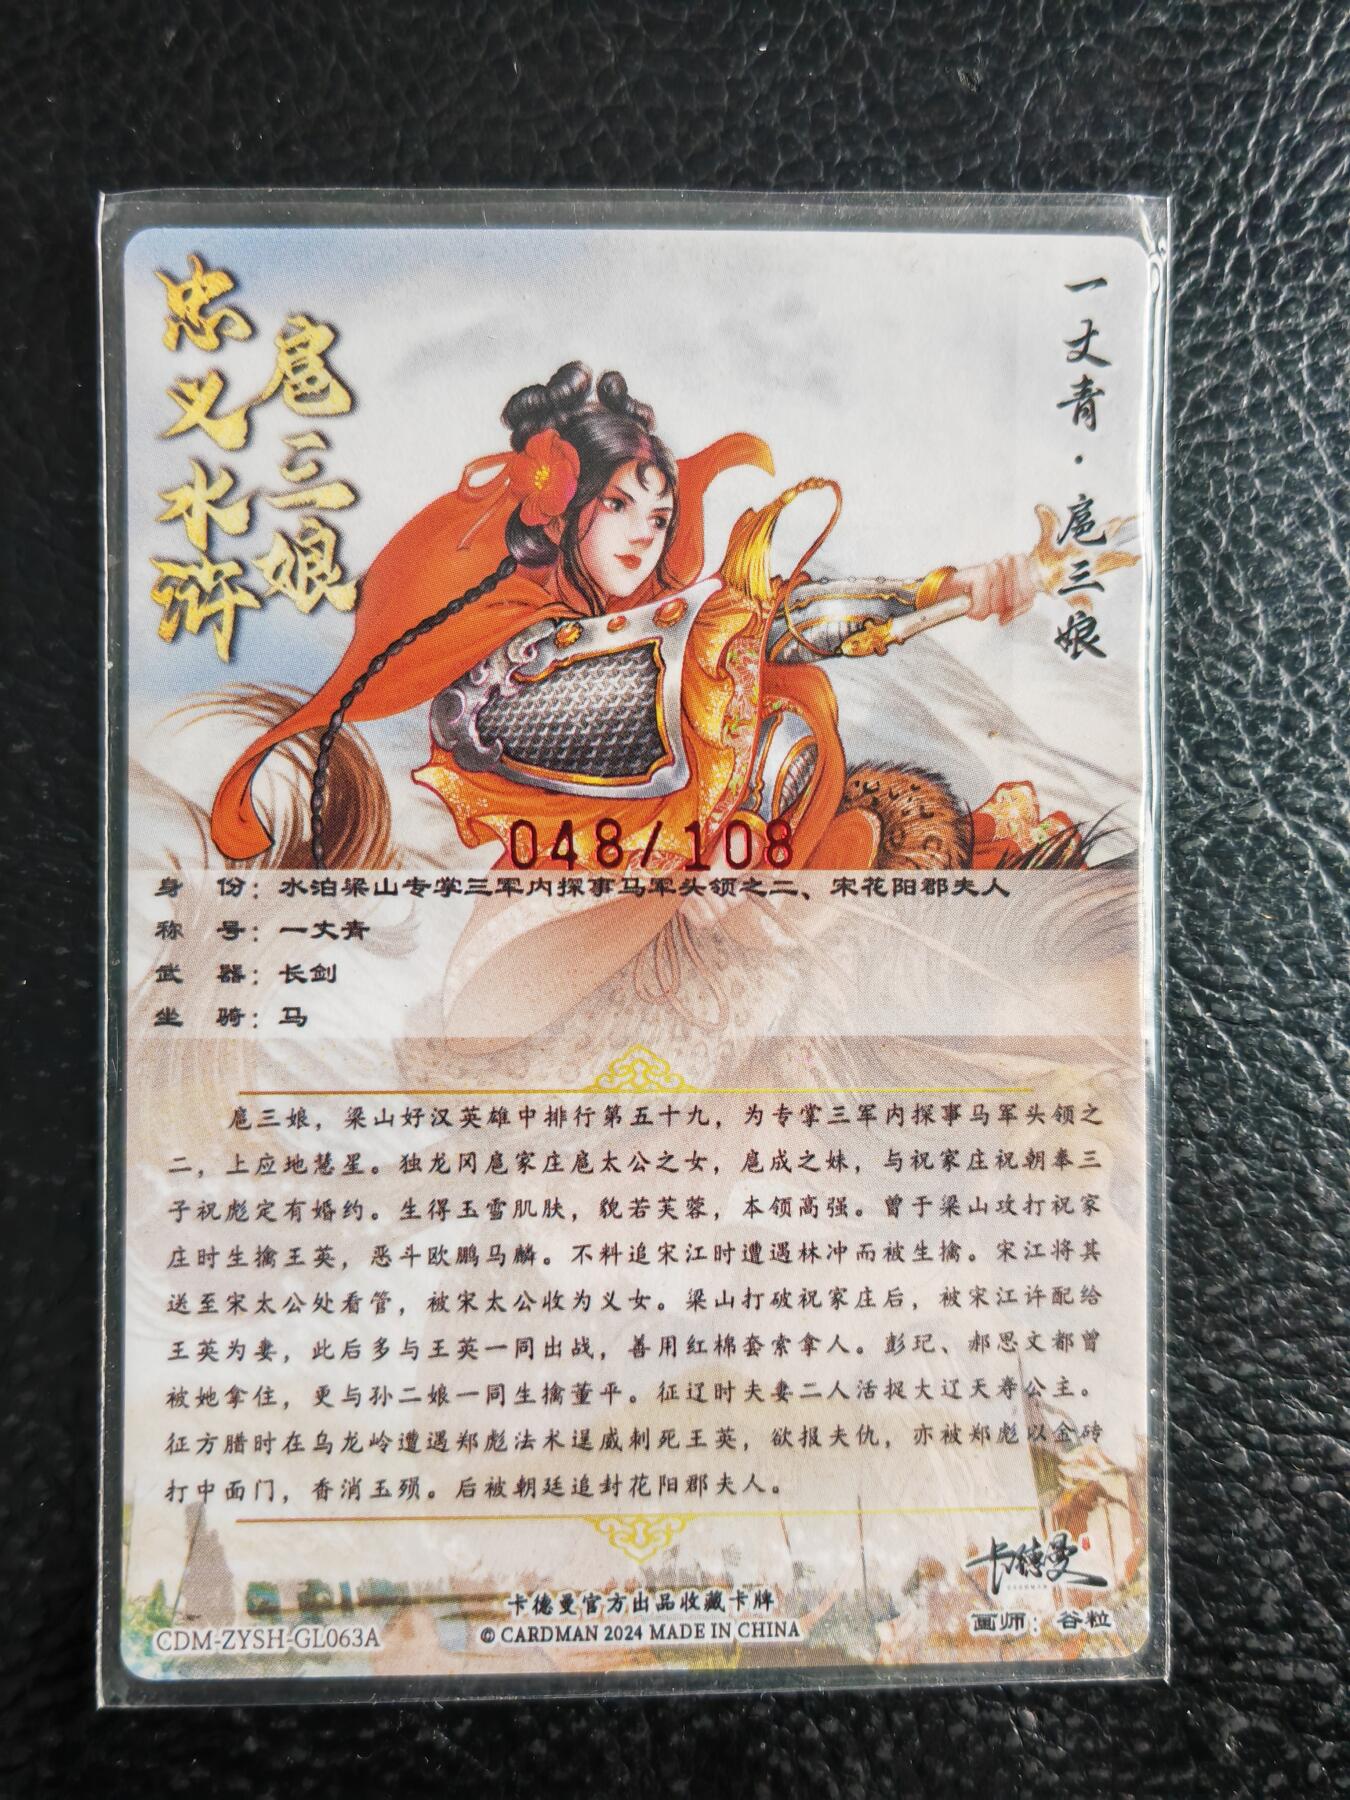 忠义水浒
扈三娘
一丈青·扈三娘
048/108
身 份：水泊梁山专掌三军内探事马军头领之二、宋花阳郡夫人
称 号：一丈青
武 器：长剑
坐 骑：马
扈三娘，梁山好汉英雄中排行第五十九，为专掌三军内探事马军头领之
二，上应地慧星。独龙冈扈家庄扈太公之女，扈成之妹，与祝家庄祝朝奉三
子祝彪定有婚约。生得玉雪肌肤，貌若芙蓉，本领高强。曾于梁山攻打祝家
庄时生擒王英，恶斗欧鹏马麟。不料追宋江时遭遇林冲而被生擒。宋江将其
送至宋太公处看管，被宋太公收为义女。梁山打破祝家庄后，被宋江许配给
王英为妻，此后多与王英一同出战，善用红棉套索拿人。彭玘、郝思文都曾
被她拿住，更与孙二娘一同生擒董平。征辽时夫妻二人活捉大辽天寿公主。
征方腊时在乌龙岭遭遇郑彪法术逞威刺死王英，欲报夫仇，亦被郑彪以金砖
打中面门，香消玉殒。后被朝廷追封花阳郡夫人。
卡德曼
CARDMAN
卡德曼官方出品收藏卡牌
CDM-ZYSH-GL063A
© CARDMAN 2024 MADE IN CHINA
画师：谷粒